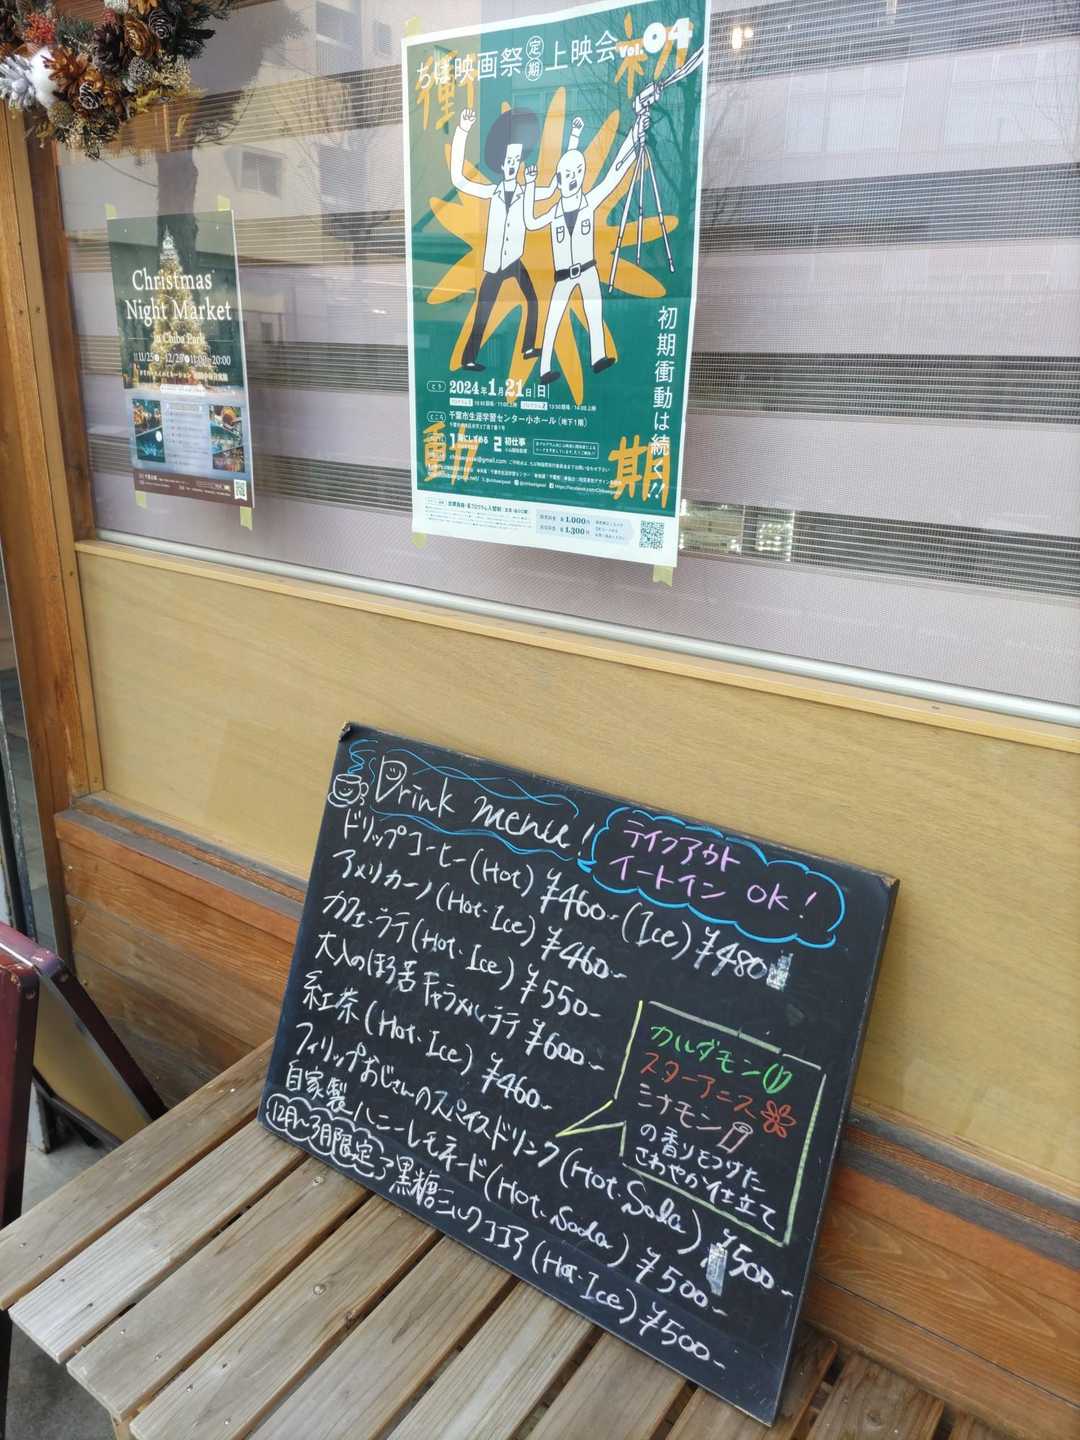 ちば映画祭 定期 上映会 Vol.04
初
期
衝
動
初期衝動は続く!!
とき 2024年1月21日|日|
ところ 千葉市生涯学習センター小ホール(地下1階)
2 初仕事
¥1,000円
¥1,300円
Christmas
Night Market
in Chiba Park
Drink menu!
テイクアウト
イートイン OK!
ドリップコーヒー(Hot) ¥460- (Ice) ¥480
アメリカーノ(Hot・Ice) ¥460-
カフェ・ラテ(Hot・Ice) ¥550-
大人のほろ苦キャラメルラテ ¥600-
紅茶(Hot・Ice) ¥460-
フィリップおじさんのスペイスドリンク(Hot・Soda) ¥500-
自家製ハニーレモネード(Hot・Soda) ¥500-
12月〜3月限定 黒糖ミルクココア(Hot・Ice) ¥500-
カルダモン
スターアニス
シナモン
の香りをつけた
さわやか仕立て